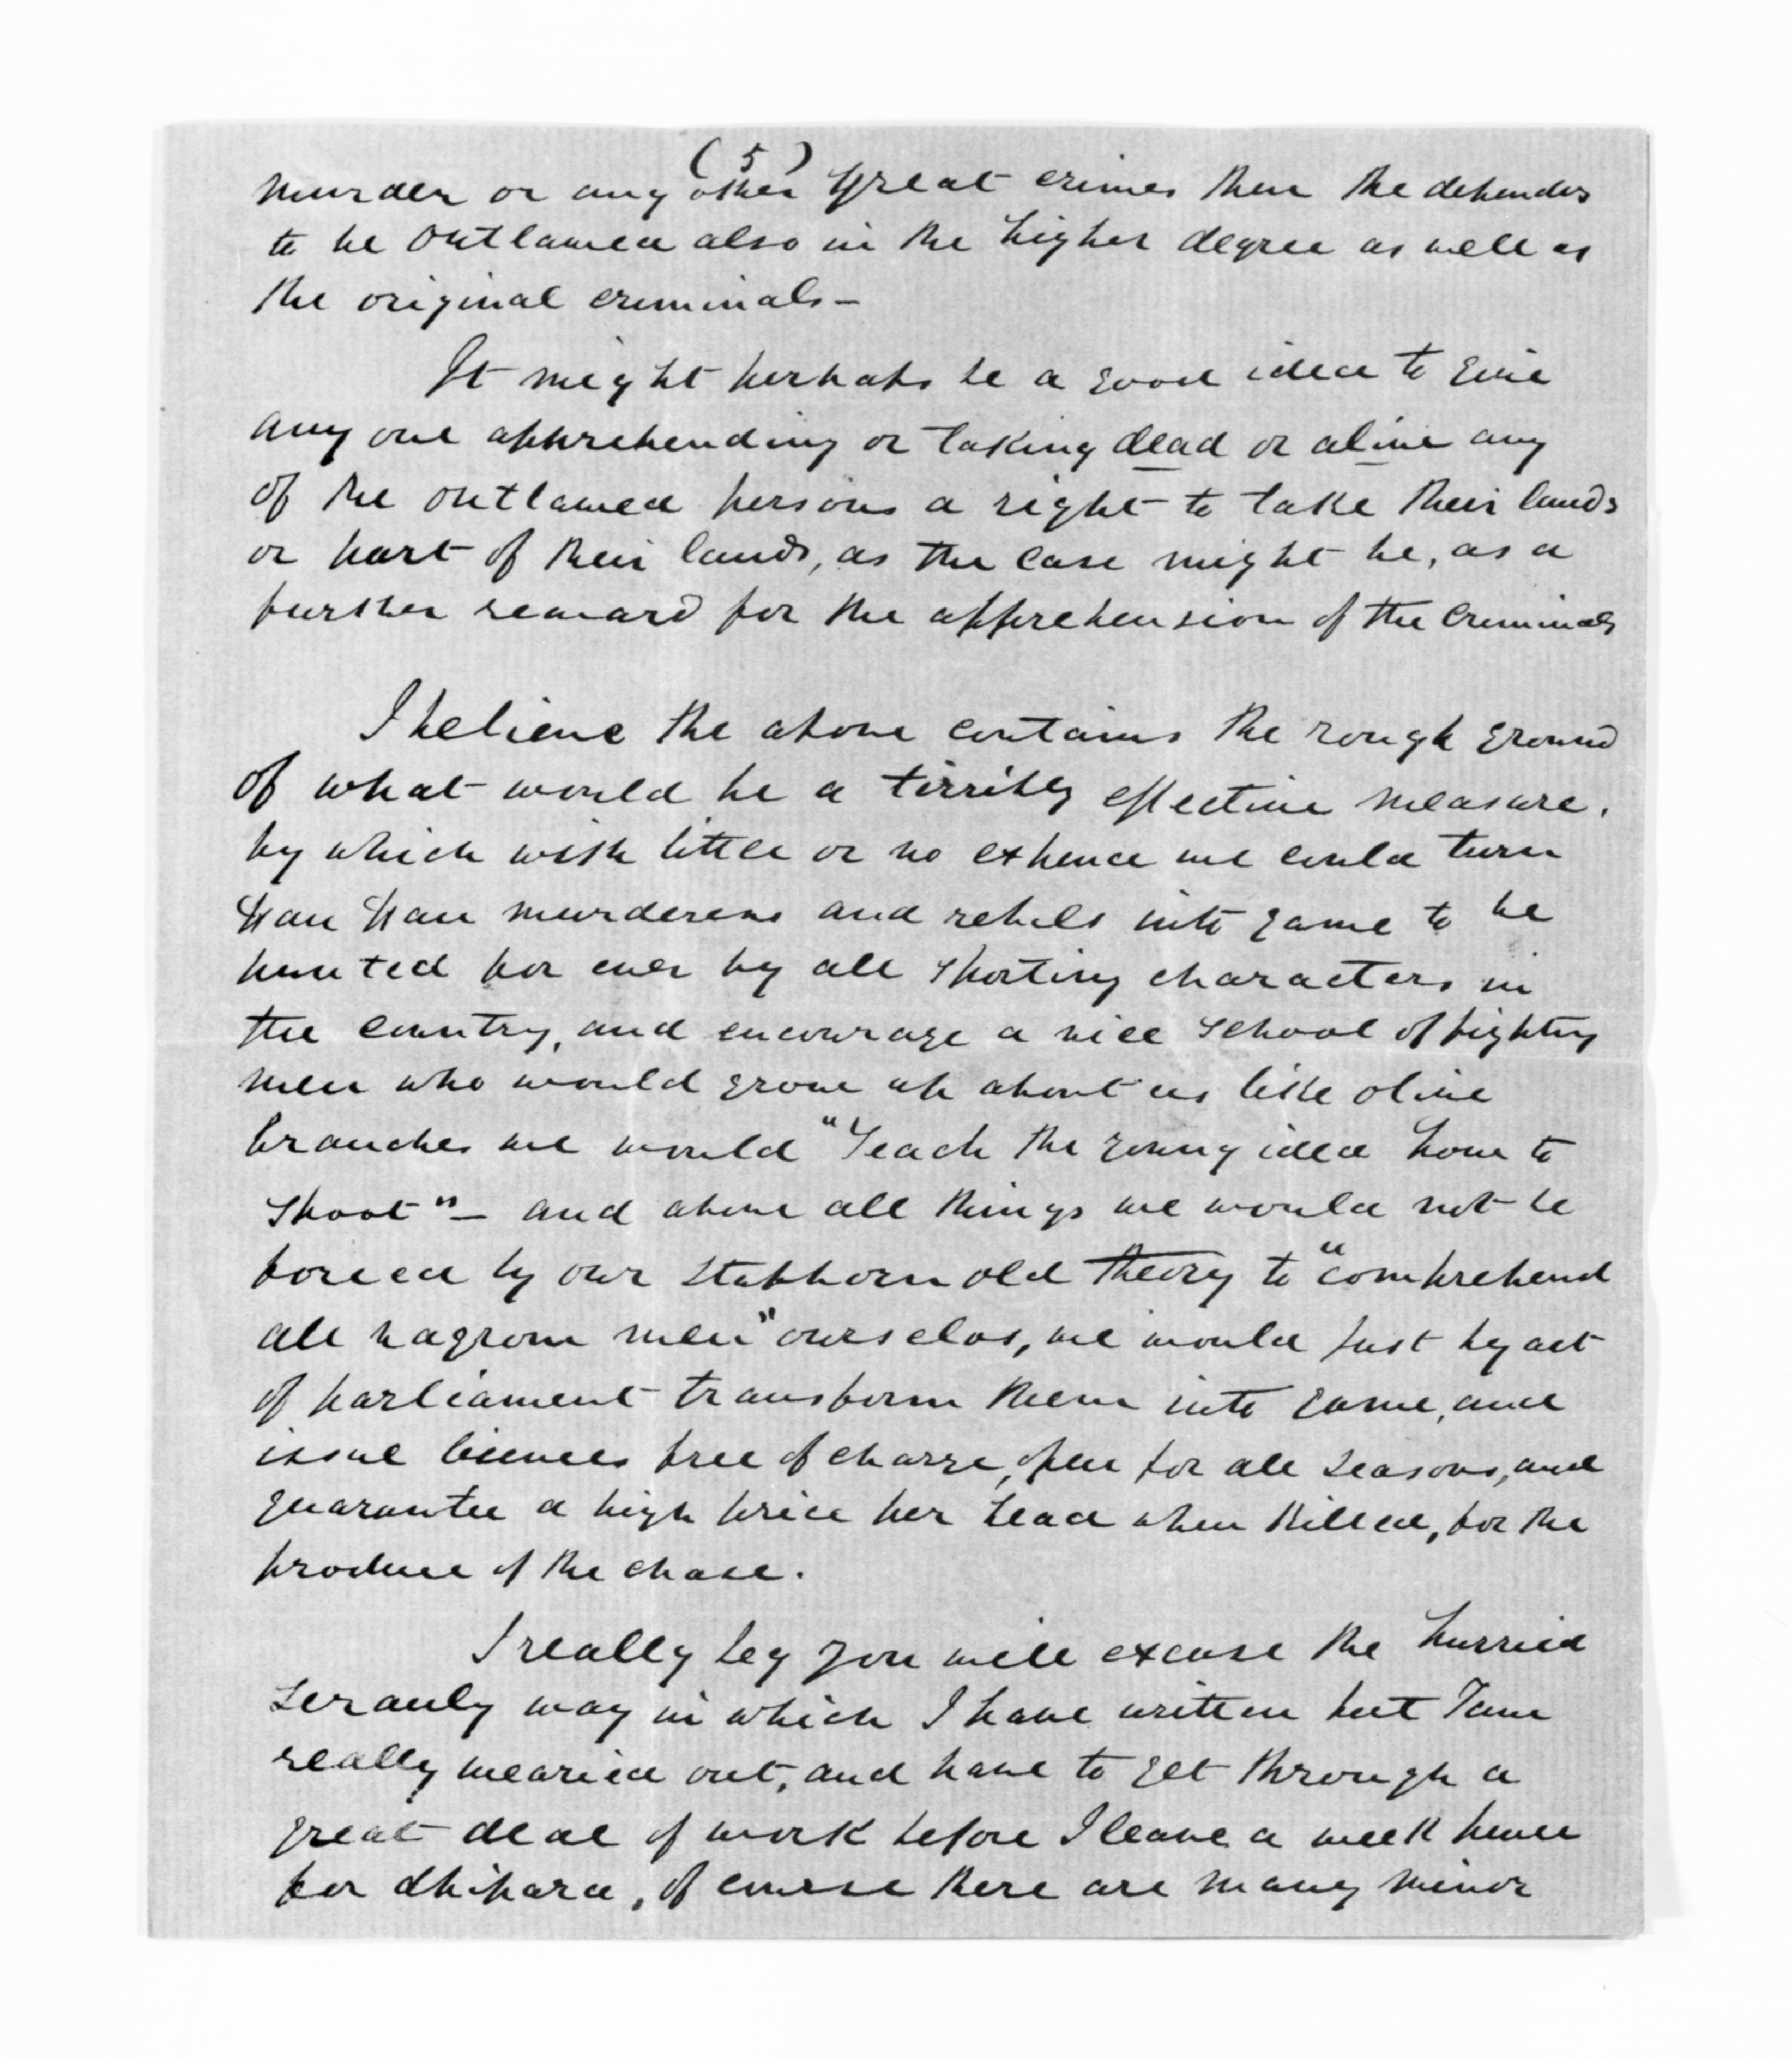 (5)
murder or any other great crimes then the defenders
to be outlawed also in the higher degree as well as
the original criminals —
It might perhaps be a good idea to give
any one apprehending or taking dead or alive any
of the outlawed persons a right to take their lands
or part of their lands, as the case might be, as a
further reward for the apprehension of the criminals
I believe the above contains the rough ground
of what would be a tirribly effective measure.
by which with little or no expence we could turn
Hau Hau murderers and rebels into game to be
hunted for ever by all sporting characters in
the country, and encourage a nice school of fighting
men who would grow up about us like olive
branches we would "Teach the young idea how to
shoot" — and above all things we would not be
forced by our stubborn old theory to "comprehend
all vagrom men" ourselvs, we would just by act
of parliament transform them into game, and
issue licences free of charge, open for all seasons, and
guarantee a high price per head when killed, for the
produce of the chase.
I really beg you will excuse the hurried
way in which I have written but I am
really wearied out, and have to get through a
great deal of work before I leave a week hence
for of course there are many minor